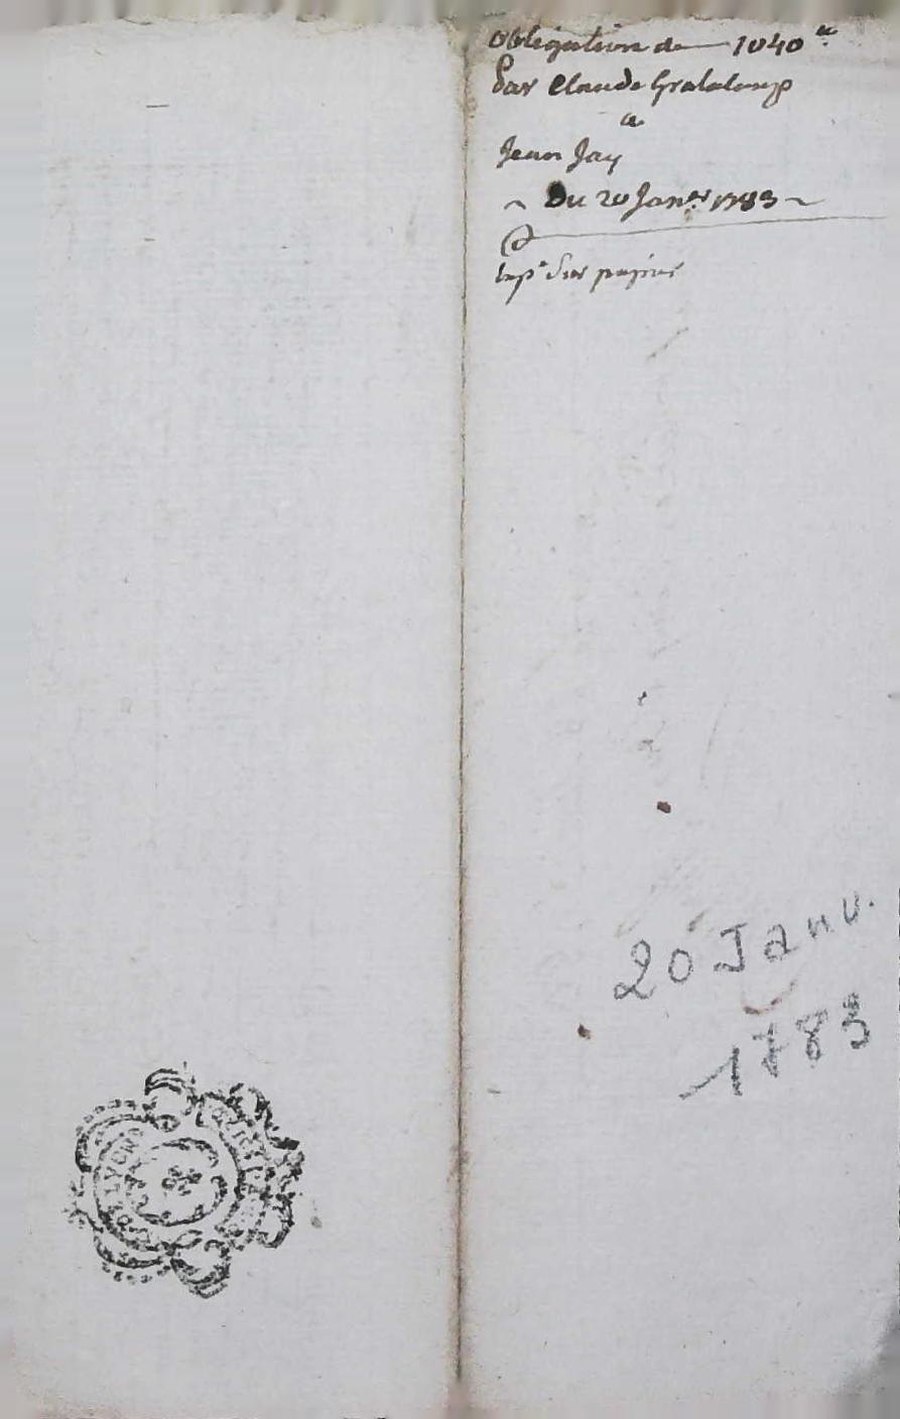 obligation de 1040 ₶
Par Claude Grataloup
a
Jean Jay
~ Du 20 Janer 1783 ~
Expe Sur papier
20 Janv.
1783